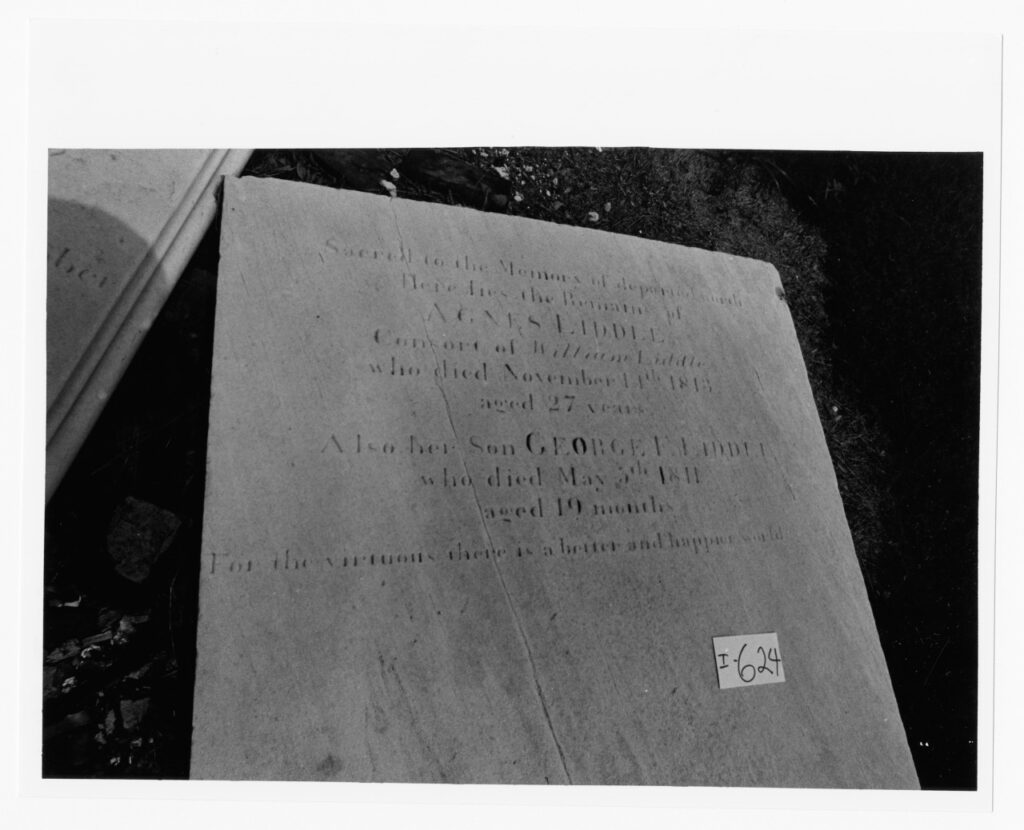 Sacred to the Memory of departed worth
Here lies the Remains of
AGNES LIDDLE
Consort of William Liddle
who died November 14th 1813
aged 27 years
Also her Son GEORGE F. LIDDLE
who died May 5th 1811
aged 19 months
For the virtuous there is a better and happier world
I-624